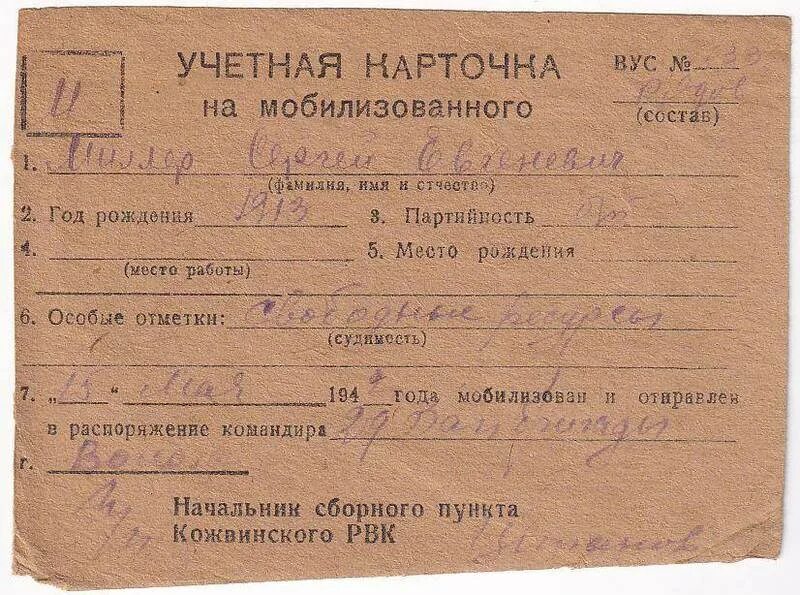 УЧЕТНАЯ КАРТОЧКА
на мобилизованного
ВУС №
Рядов
(состав)
1. Миллер Сергей Евгеневич
(фамилия, имя и отчество)
2. Год рождения 1913 3. Партийность б/п
4. 5. Место рождения
(место работы)
6. Особые отметки: свободные ресурсы
(судимость)
7. „13“ Мая 194 года мобилизован и отправлен
в распоряжение командира 29
г.
Начальник сборного пункта
Кожвинского РВК